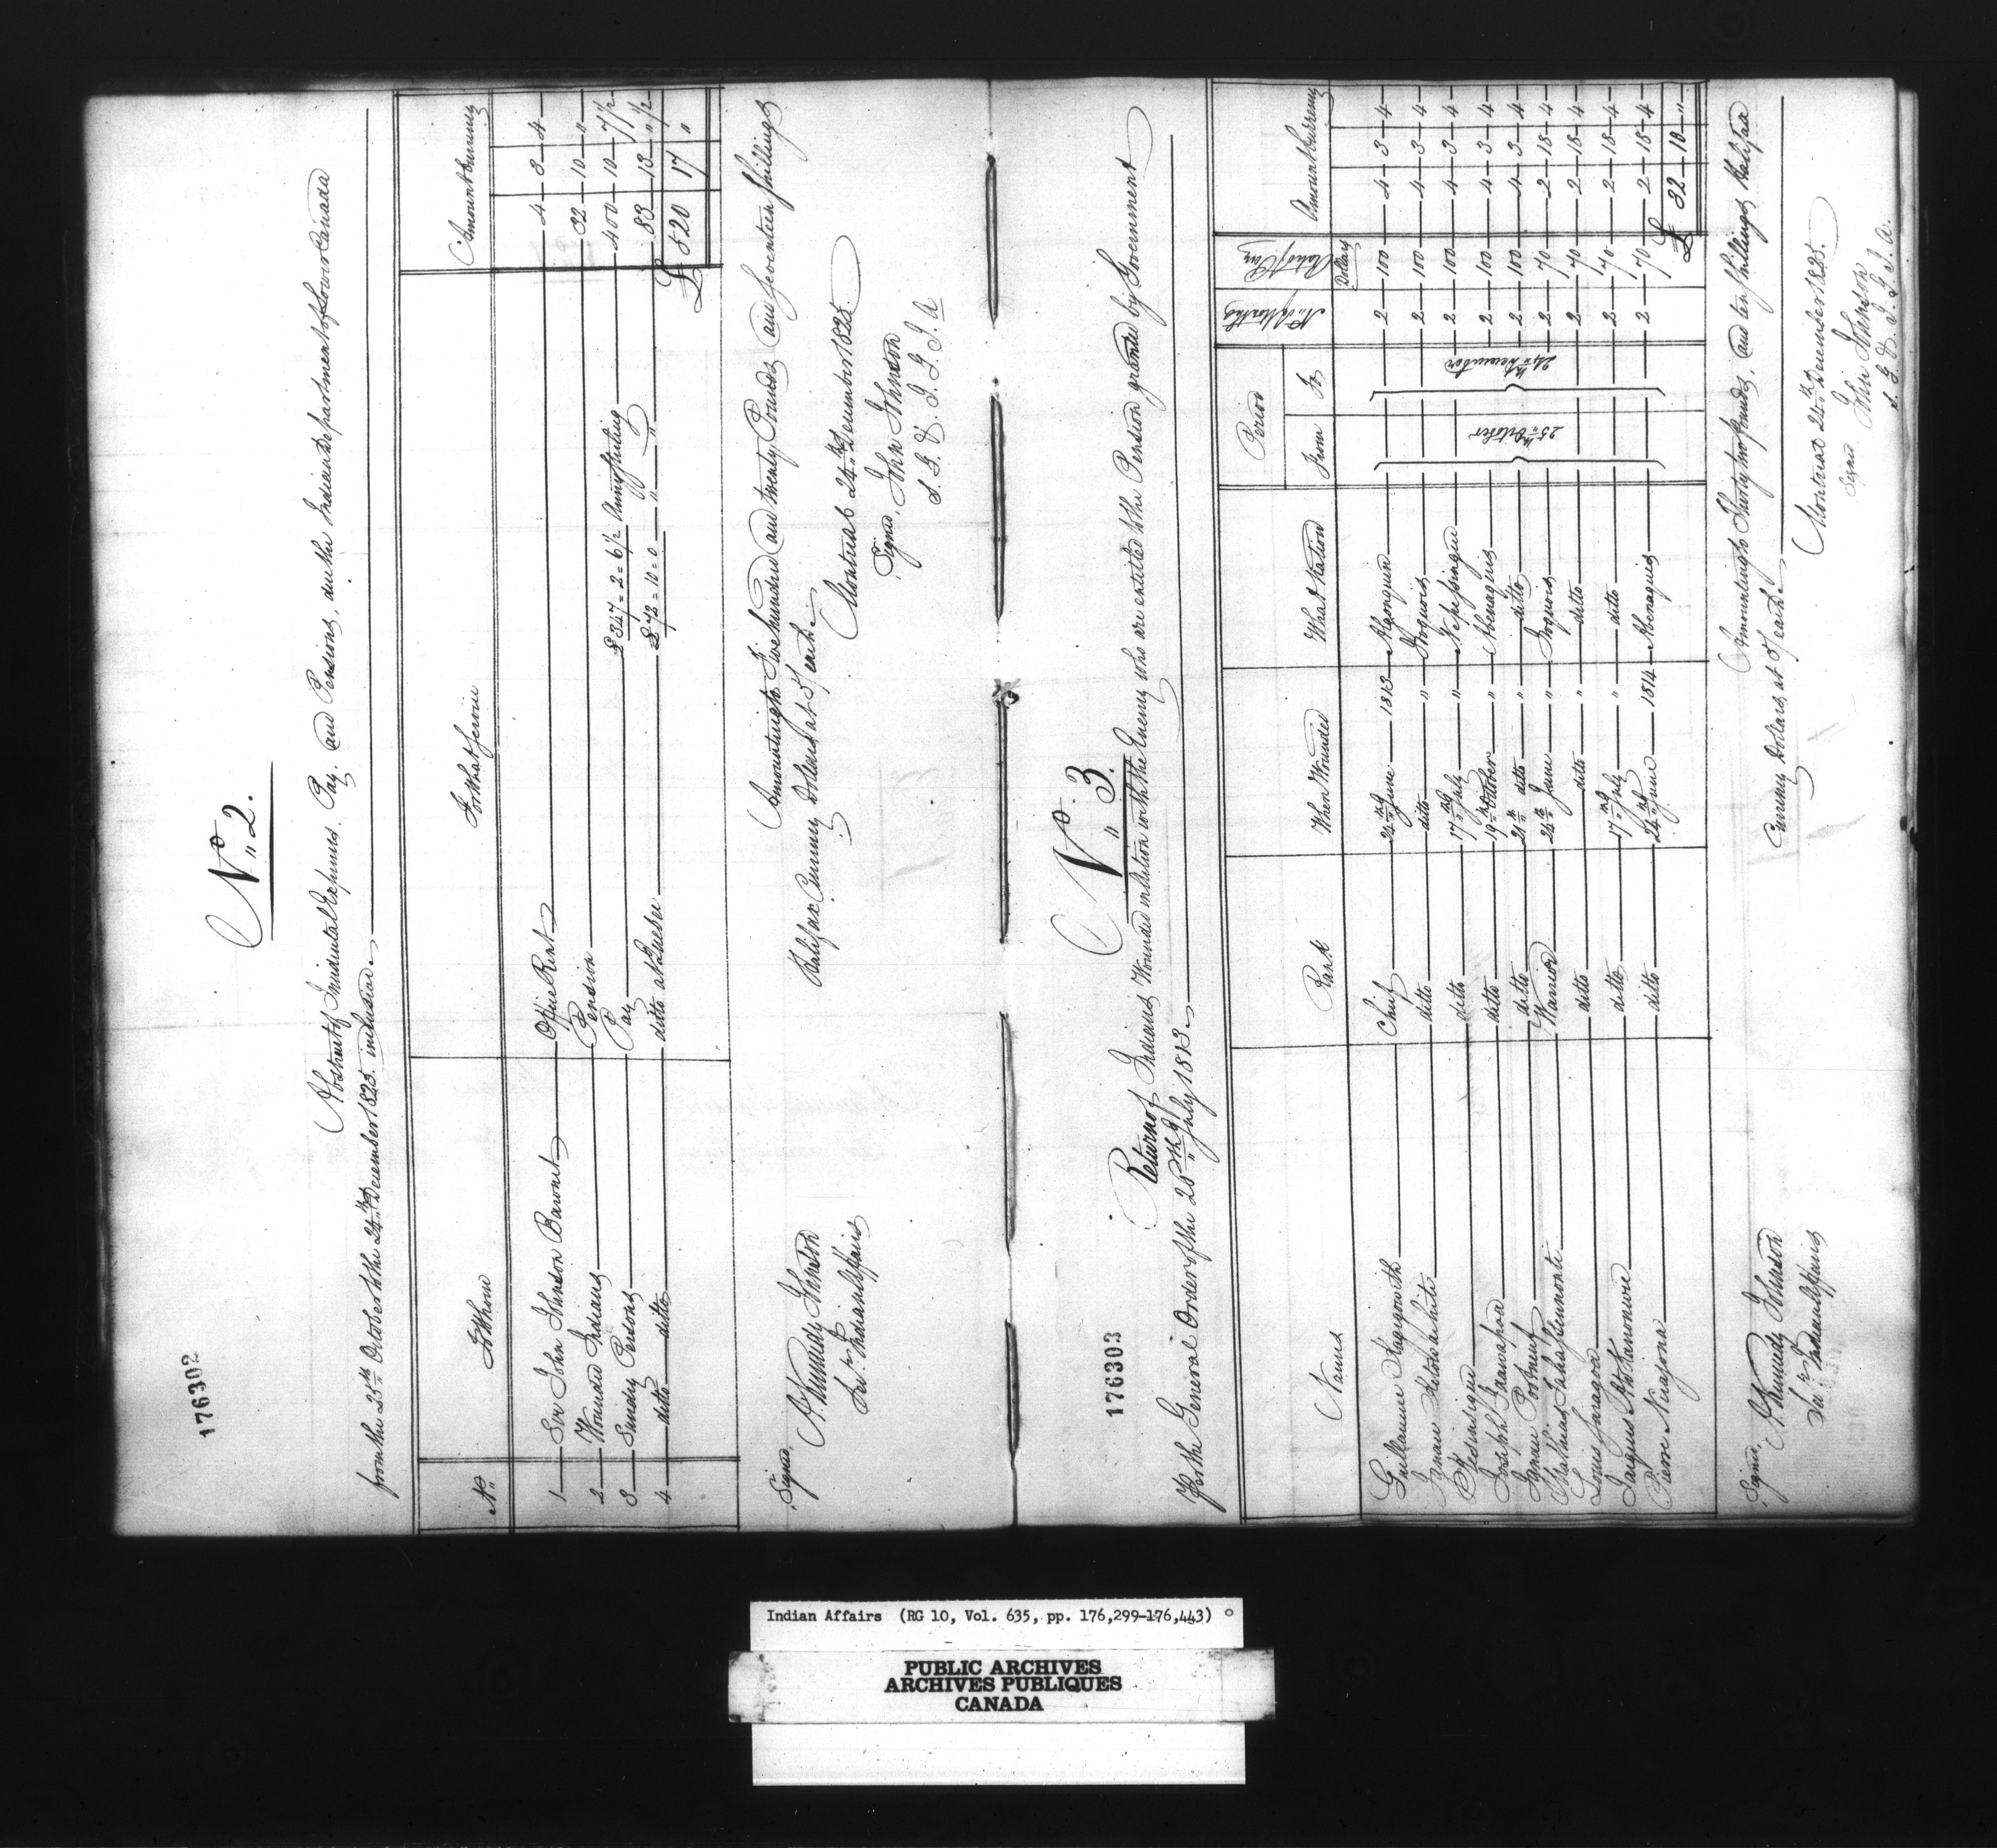 176302
No. 2.
Abstract of Incidental Expenses, Pay, and Pensions, due the Indian Department of Lower Canada
from the 25th October to the 24th December 1825. inclusive.
No. To Whom For What Service Amount Currency
1 Sir John Johnson Baronet Office Rent 4 3 4
2 Wounded Indians Pension 32 10 "
3 Sundry Persons Pay £347 = 2 = 6 1/2 Army Sterling 400 10 7 1/2
4 ditto ditto ditto at Quebec £72 = 10 = 0 " " 83 13 " 1/2
£ 520 17 "
Amounting to Five hundred and twenty Pounds and Seventeen Shillings
Halifax Currency Dollars at 5/ each.
Montreal 24th December 1825.
Signed, John Johnson
S. G. & I. G. I. A
Signed,
N. Kennedy Johnson
Sec'y Indian Affairs
176303
No. 3.
Return of Indians Wounded in Action with the Enemy who are entitled to the Pension granted by Government
Per the General Order of the 26th July 1813.
Names Rank When Wounded What Nation Period No. of Months Rate of Pay Amount Currency
From To Dollars
Guillaume 24th June 1813 Algonquin 2 100 4 3 4
Chief
Ignace ditto ditto " Iroquois 2 100 4 3 4
ditto 17th July " Nipissingue 2 100 4 3 4
Joseph ditto 19th October " Abenaquis 2 100 4 3 4
Ignace Portneuf ditto 21st ditto " ditto 2 100 4 3 4
Mathias Warrior 24th June " Iroquois 2 70 2 18 4
Louis ditto ditto " ditto 2 70 2 18 4
Jacques ditto 17th July " ditto 2 70 2 18 4
Pierre ditto 24th June 1814 Abenaquis 2 70 2 18 4
25th October
24th December
£ 32 10 "
Amounting to Thirty two Pounds, and ten Shillings Halifax
Currency Dollars at 5/ each.
Montreal 24th December 1825.
Signed John Johnson
S. G. & I. G. I. A.
Signed,
N. Kennedy Johnson
Sec'y Indian Affairs
Indian Affairs (RG 10, Vol. 635, pp. 176,299-176,443)
PUBLIC ARCHIVES
ARCHIVES PUBLIQUES
CANADA